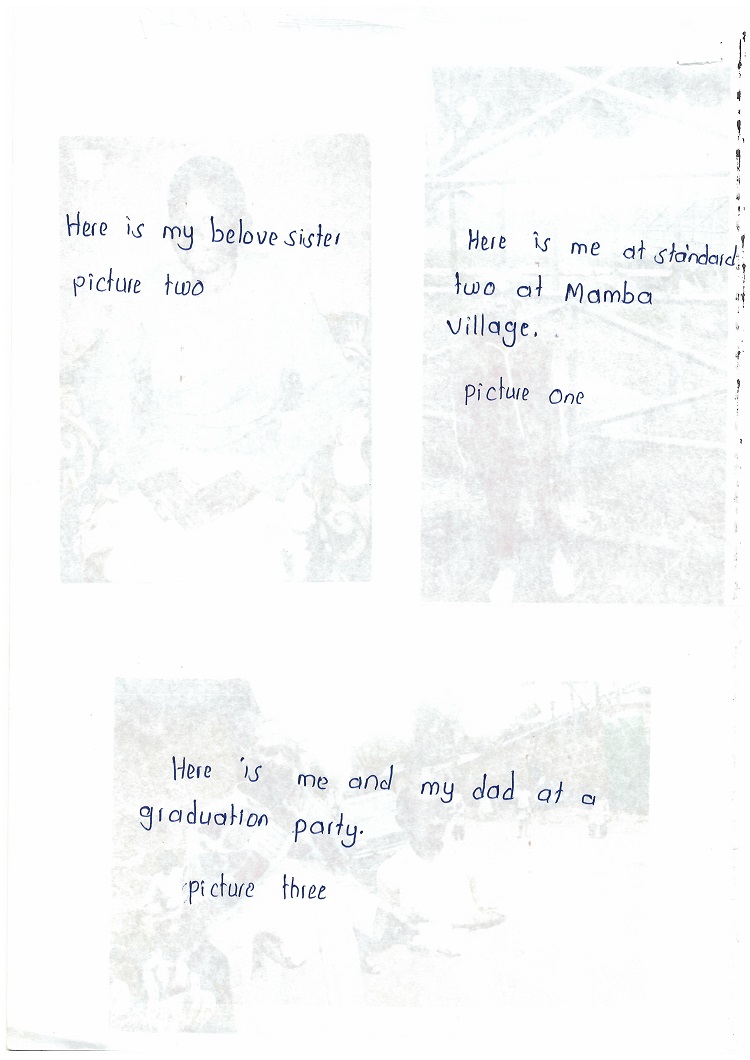 Here is my belove sister
picture two
Here is me at standard
two at Mamba
Village.
picture one
Here is me and my dad at a
graduation party.
picture three